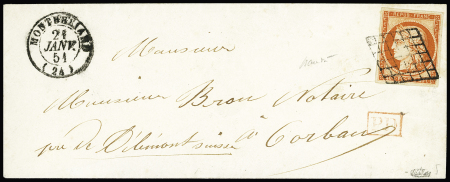 MONTBELIARD
21
JANV.
51
(24)
REPUB. FRANC.
Monsieur
Monsieur Brou Notaire
près de Délémont suisse à Corban
PD